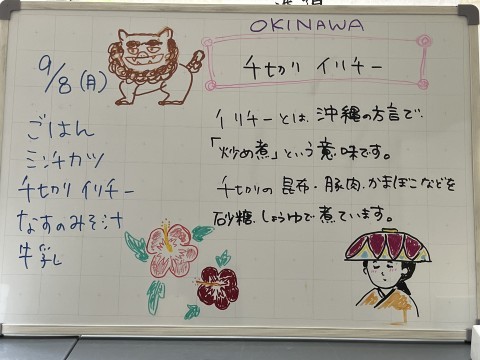 OKINAWA
千切り イリチー
9/8(月)
ごはん
ミンチカツ
千切り イリチー
なすのみそ汁
牛乳
イリチーとは、沖縄の方言で
「炒め煮」という意味です。
千切りの昆布・豚肉・かまぼこなどを
砂糖、しょうゆで煮ています。